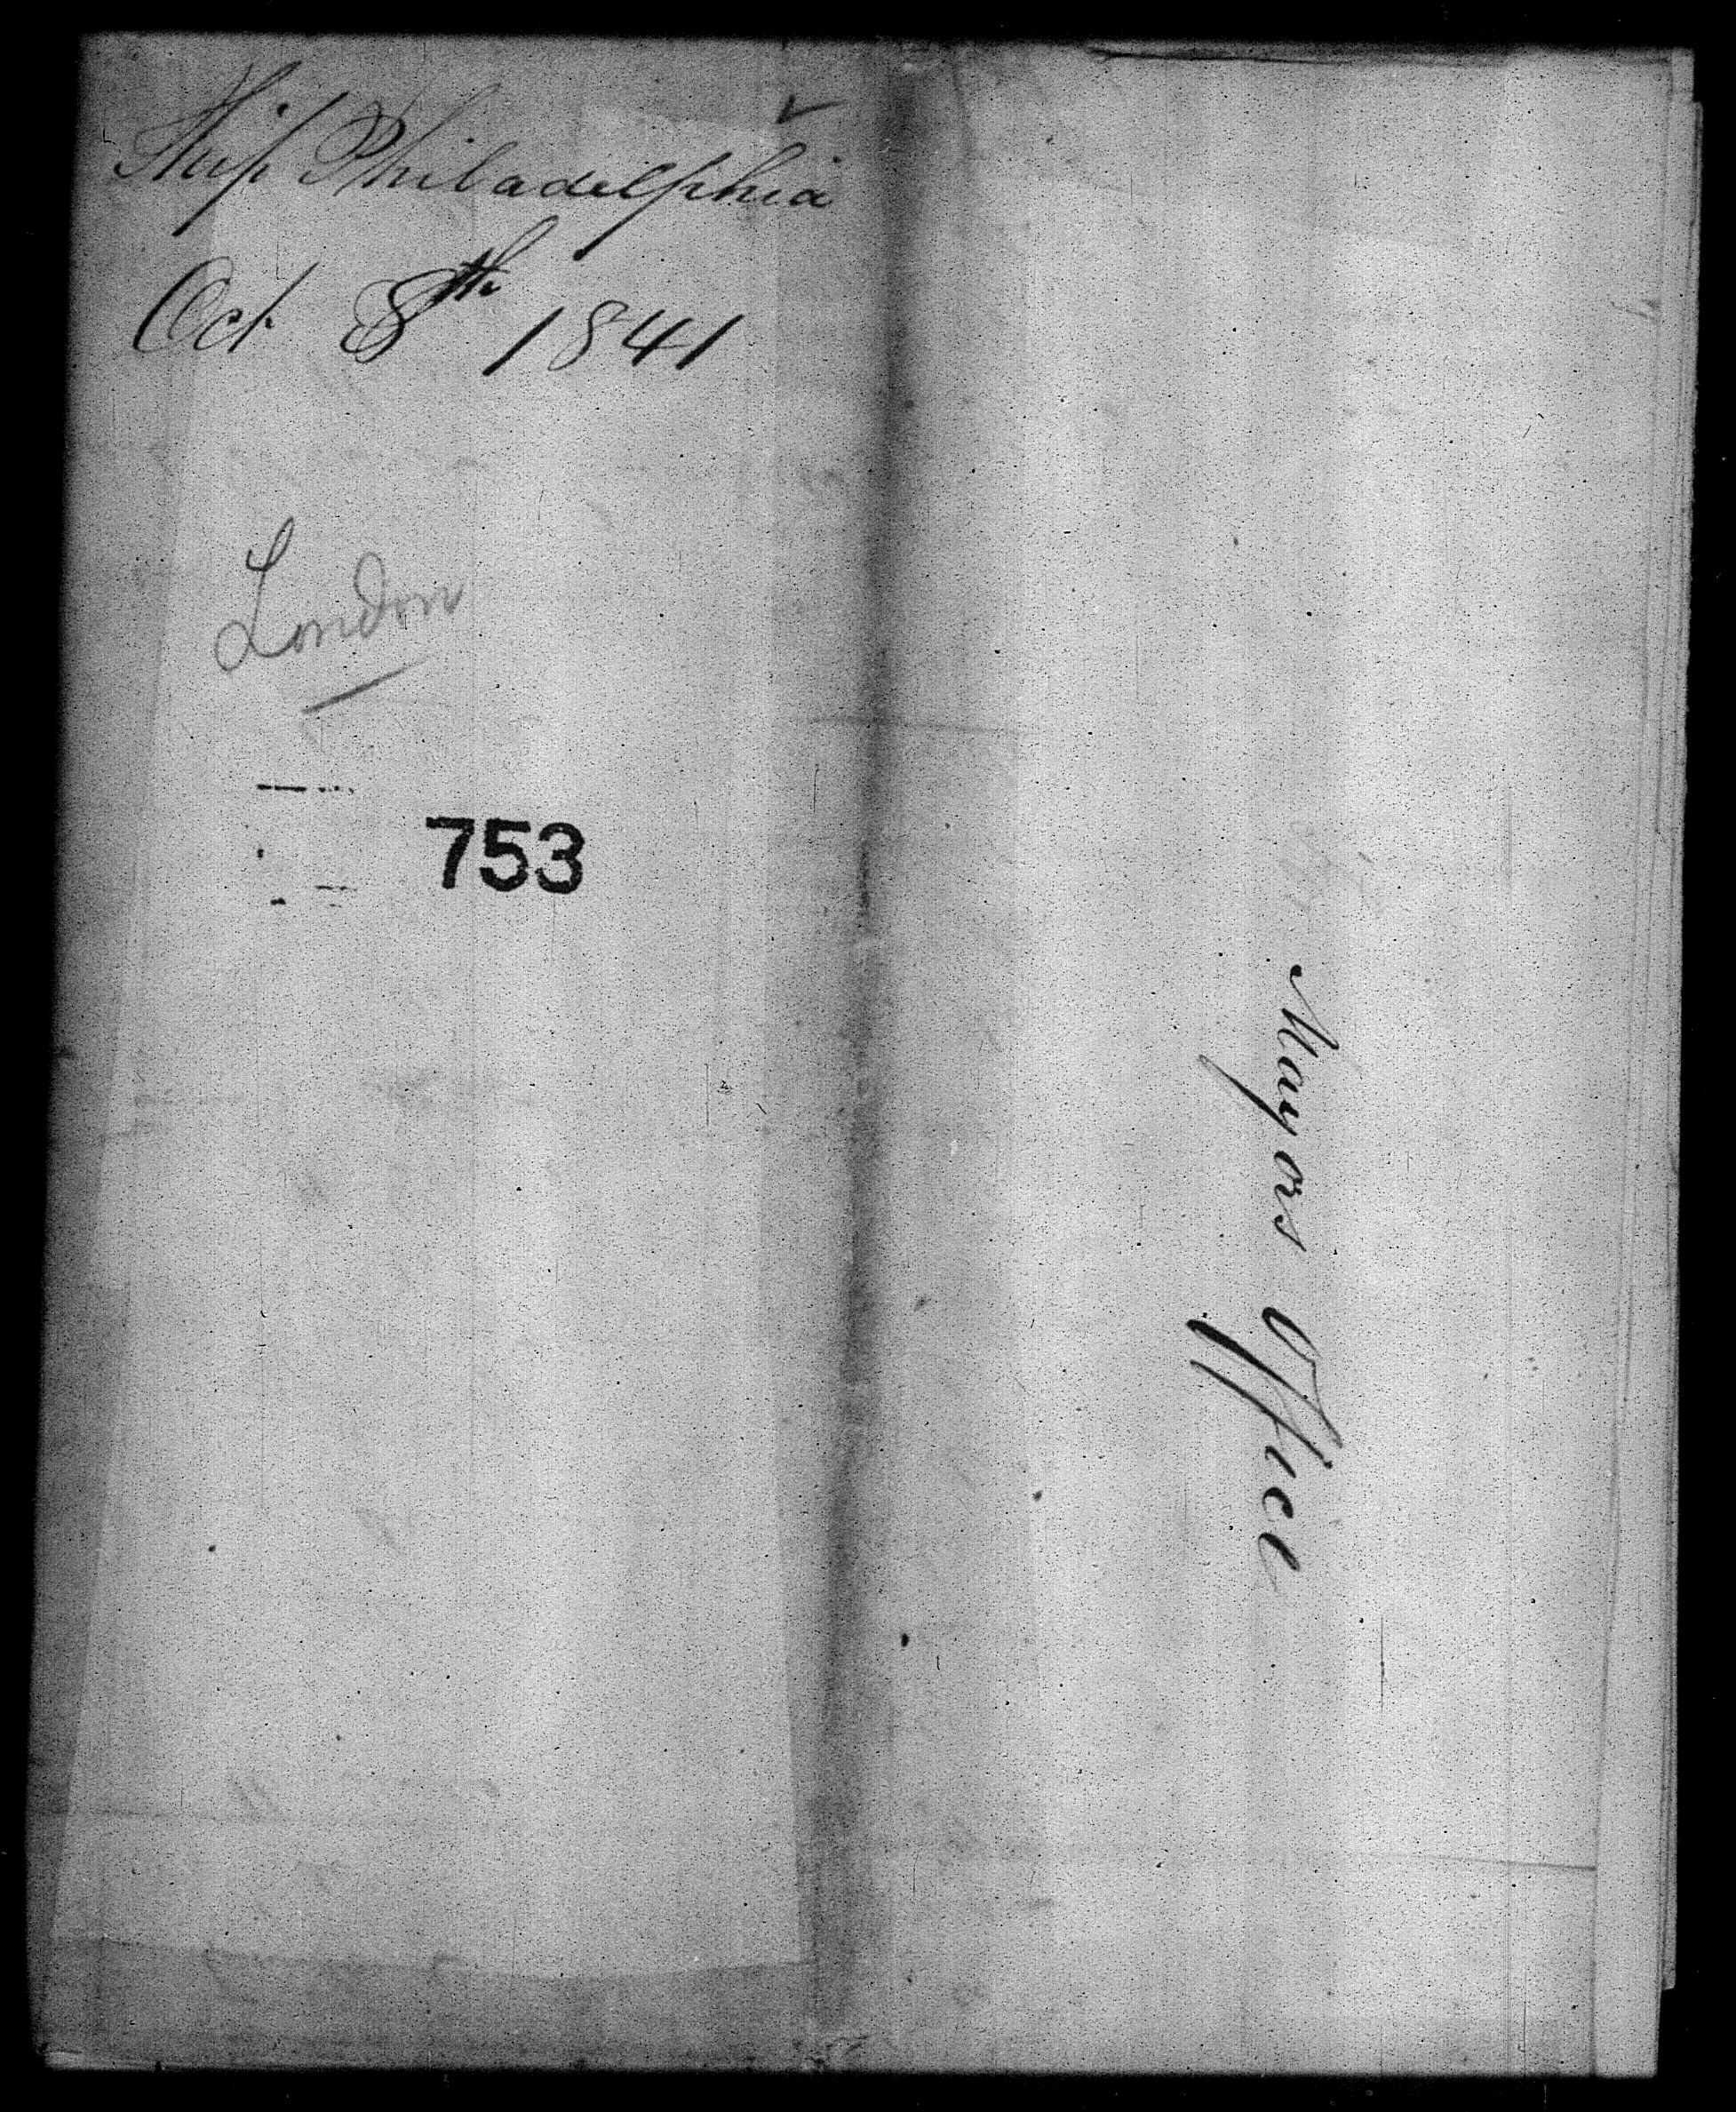 Ship Philadelphia
Oct 8th 1841
London
753
Mayors Office